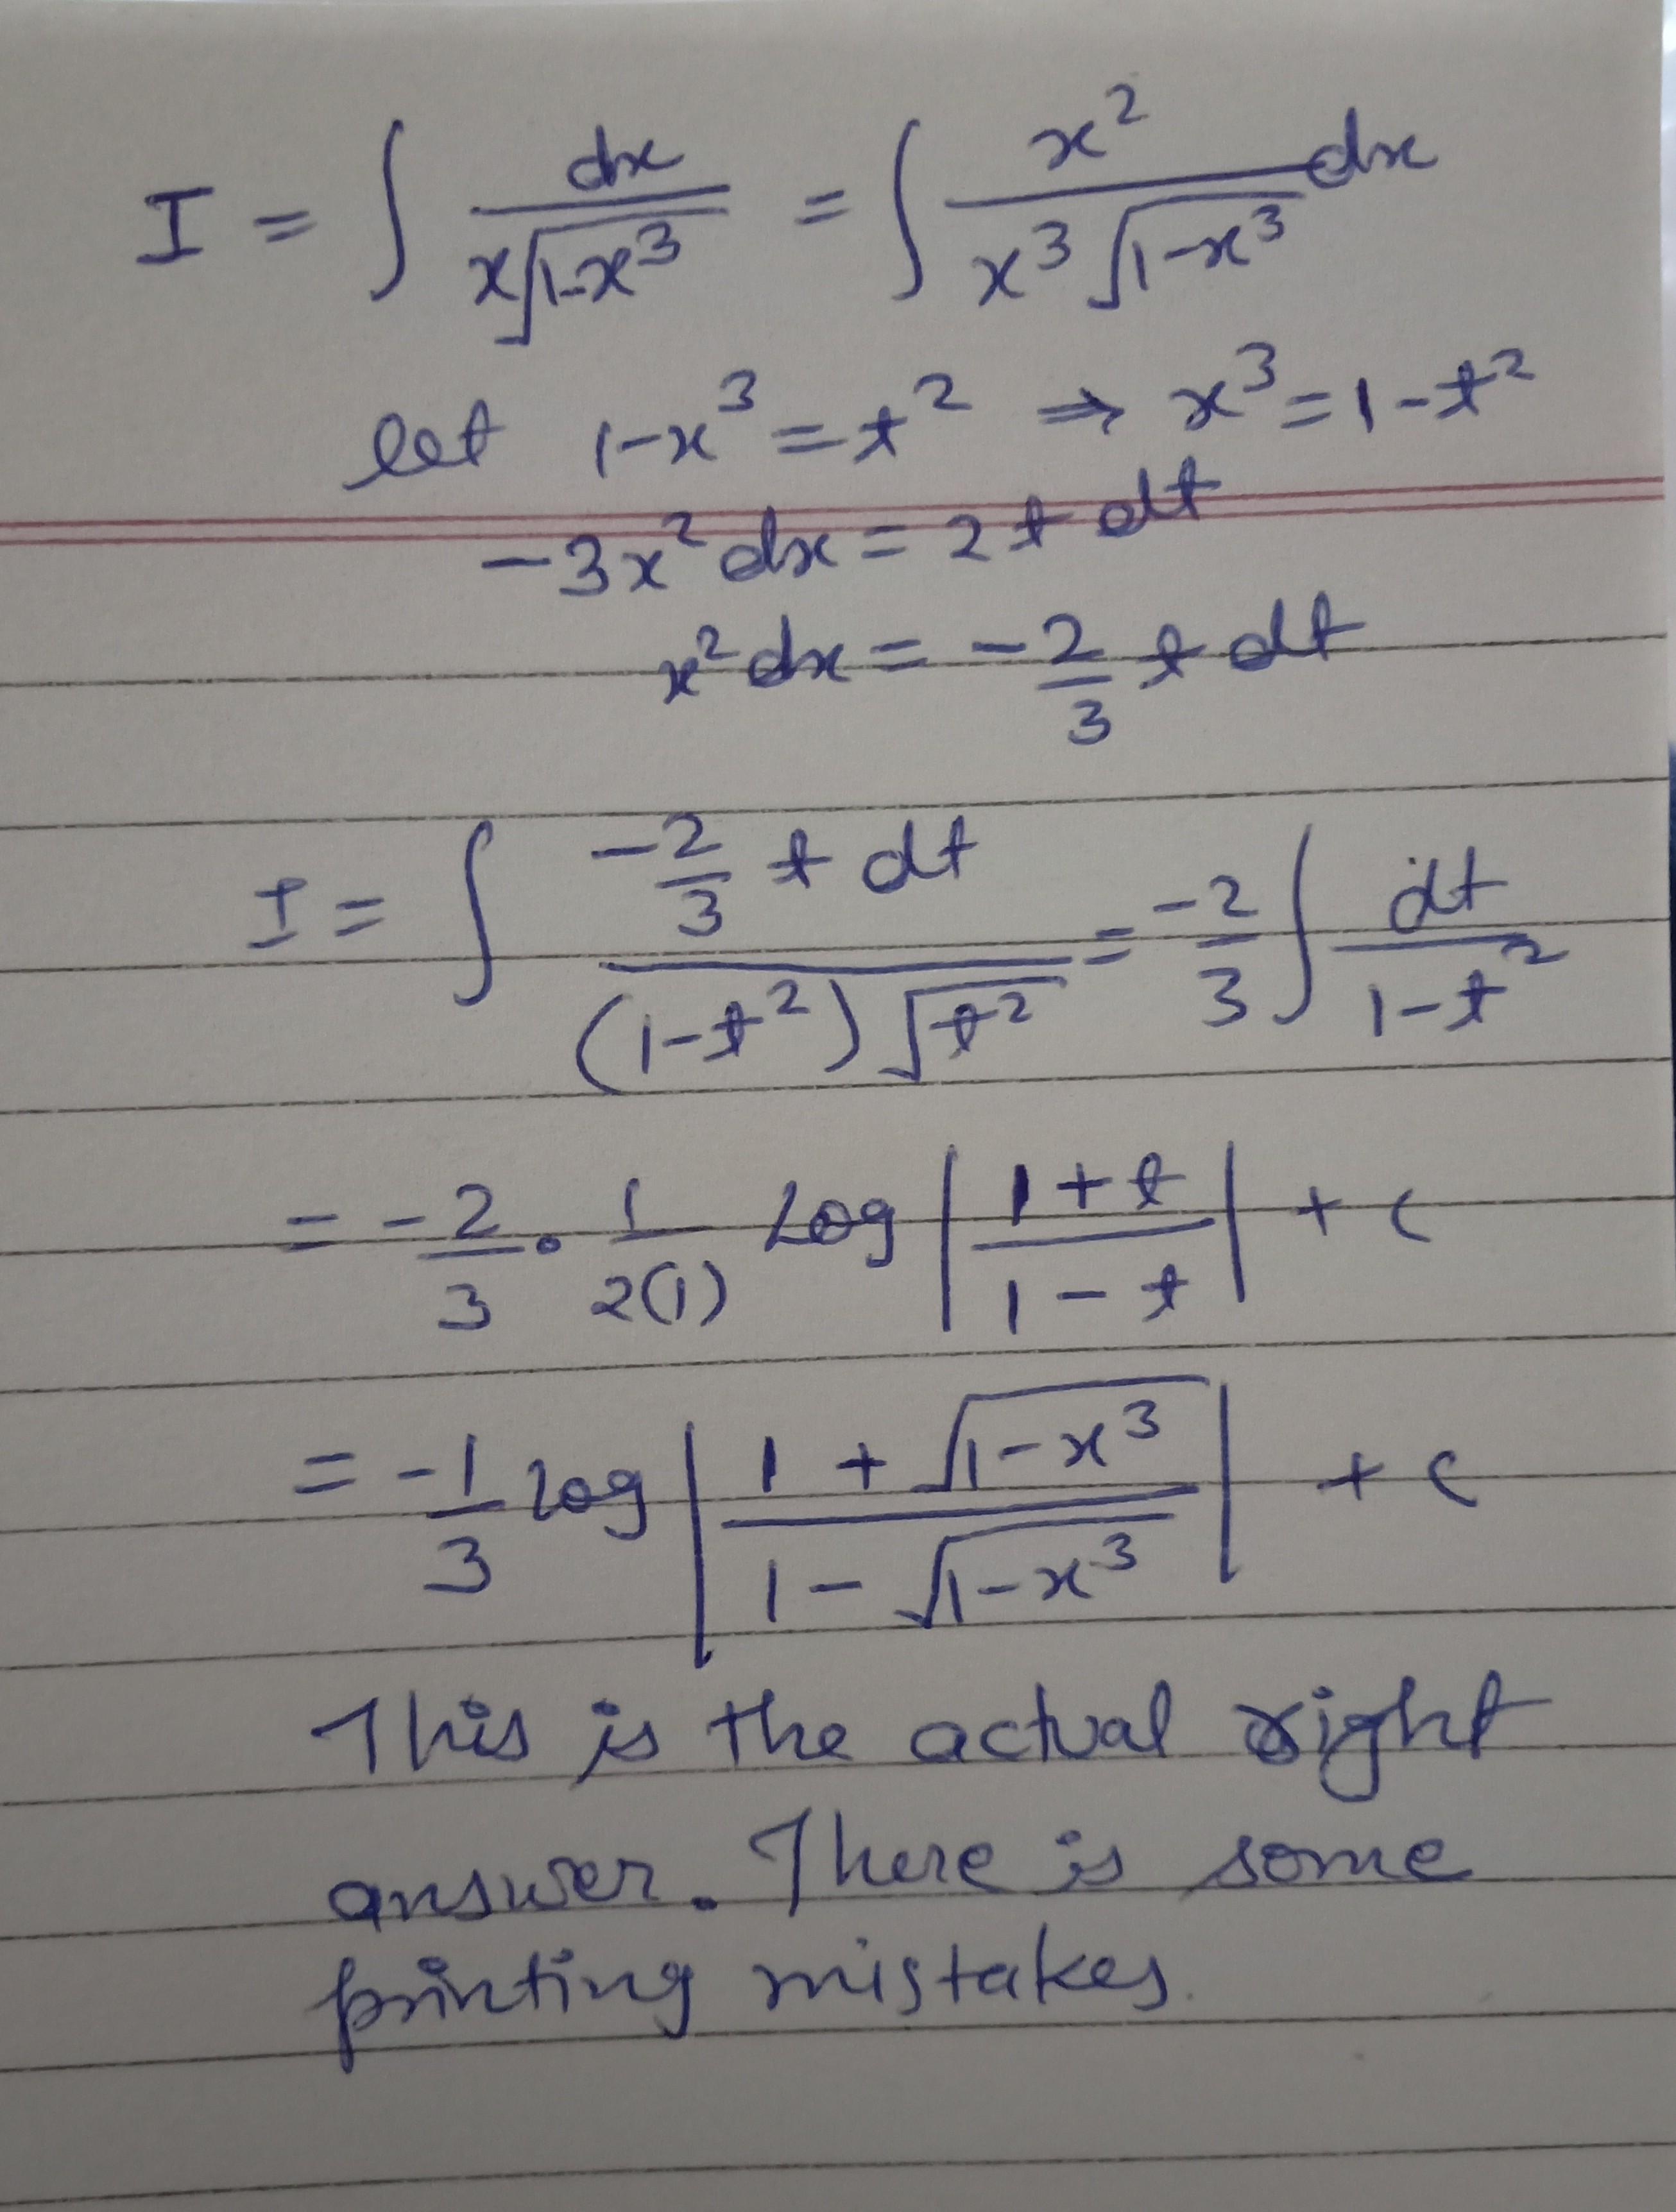 I = ∫ dx / x√(1-x³) = ∫ x² / x³√(1-x³) dx
let 1-x³ = t² ⇒ x³ = 1-t²
-3x² dx = 2t dt
x² dx = -2/3 t dt
I = ∫ -2/3 t dt / (1-t²)√t² = -2/3 ∫ dt / 1-t²
= -2/3 · 1/2(1) Log |1+t / 1-t| + c
= -1/3 log |1+√(1-x³) / 1-√(1-x³)| + c
This is the actual right
answer. There is some
printing mistakes.